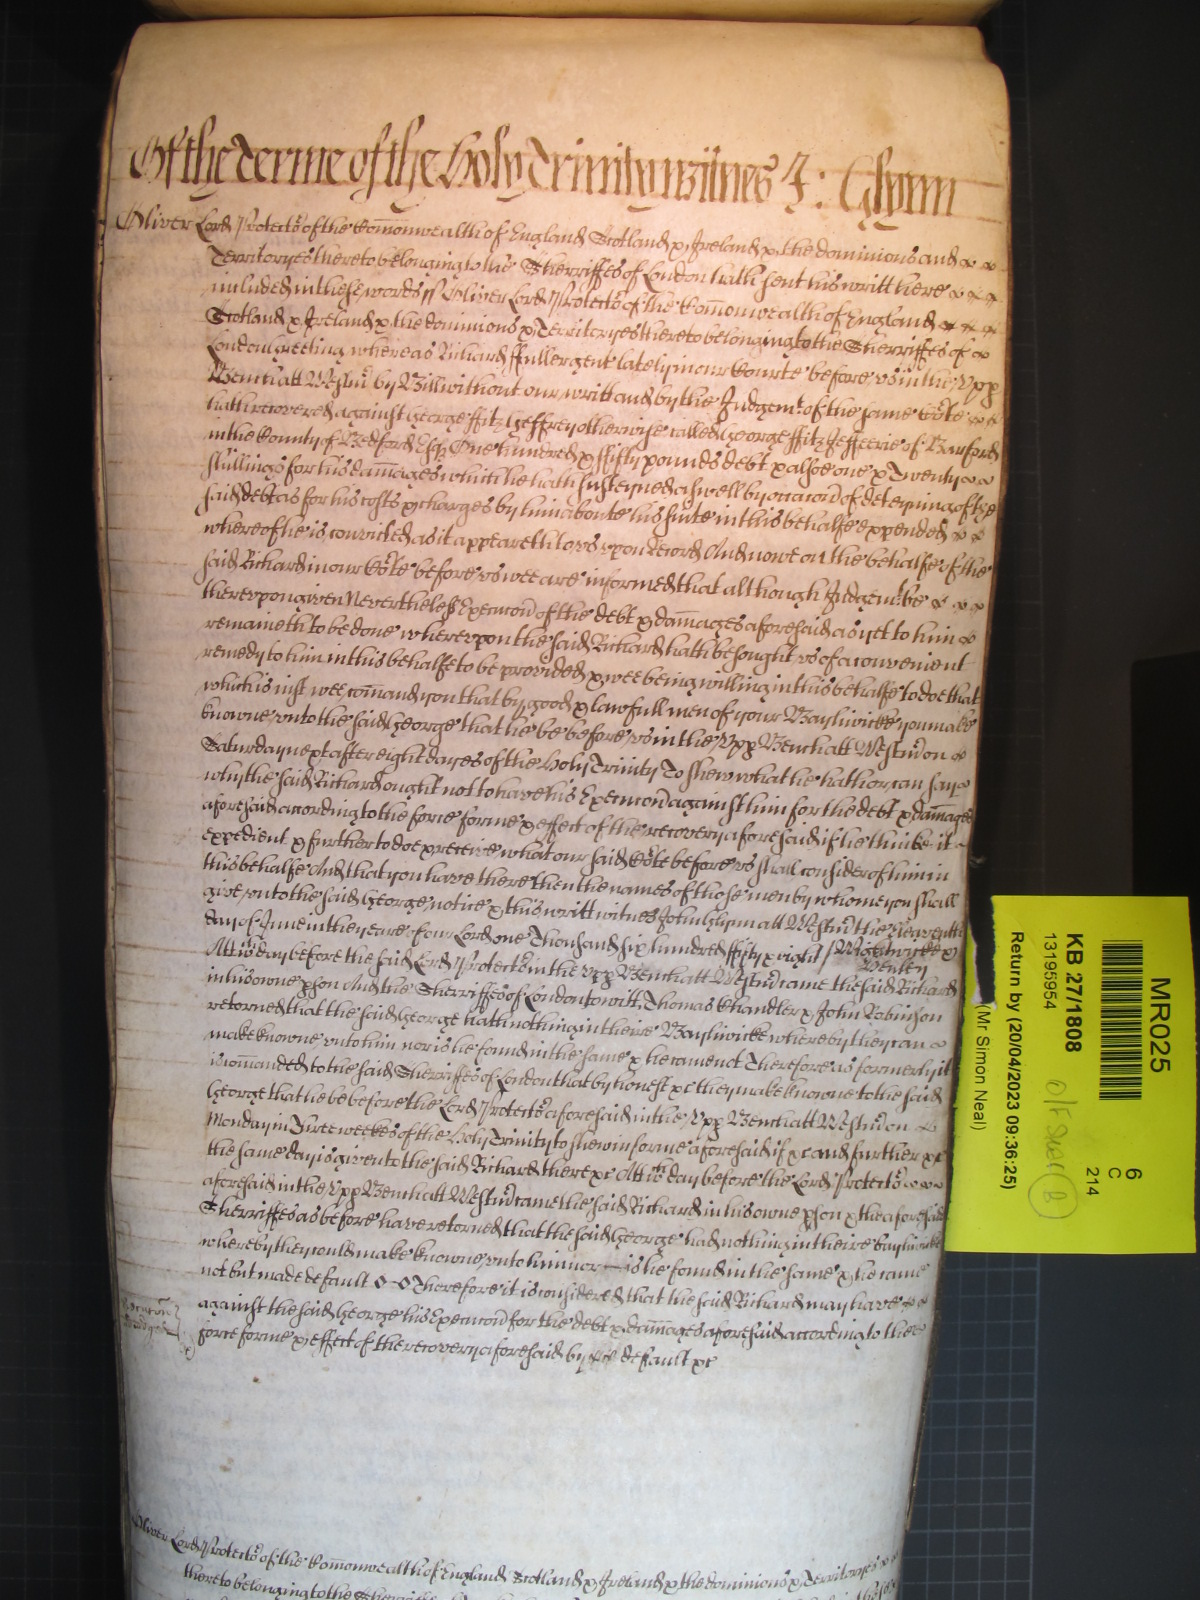 Of the Terme of the Holy Trinity witnes J: Glynn
Oliver Lord Protector of the Comonwealth of England Scotland & Ireland & the dominions and
Territoryes thereto belonging to the Sherriffes of London hath sent his writt here
included in these words ss Oliver Lord Protector of the Comonwealth of England
Scotland & Ireland & the dominions & Territoryes thereto belonging to the Sherriffes of
London greeting whereas Richard ffuller gent lately in our Courte before vs in the Vpp
Bench att Westmr by Bill without our writt and by the Judgemt of the same Cote
hath recovered against George ffitz Geffrey otherwise called George ffitz Jefferie of Barford
in the County of Bedford Esqr One hundred & ffifty pounds debt & alsoe one & Twenty
shillings for his damages which he hath susteyned aswell by occacon of deteyning of the
said debt as for his costs & charges by him aboute his suite in this behalfe expended
whereof he is convicted as it appeareth to vs vpon Record And nowe on the behalfe of the
said Richard in our Cote before vs wee are informed that although Judgemt be
therevpon given Neverthelesse Execucon of the debt & damages aforesaid as yet to him
remaineth to be done wherevpon the said Richard hath besought vs of a convenient
remedy to him in this behalfe to be provided & wee being willing in this behalfe to doe that
which is just wee comand you that by good & lawfull men of your Bayliwicke you make
knowne vnto the said George that he be before vs in the Vpp Bench att Westmr on
Saturday next after eight dayes of the Holy Trinity To shew what he hath or can say
why the said Richard ought not to have his Execucon against him for the debt & damages
aforesaid according to the force forme & effect of the recovery aforesaid if he thinke it
expedient & further to doe & receive what our said Cote before vs shall consider of him in
this behalfe And that you have there then the names of those men by whome you shall
give vnto the said George notice & this writt witnes John Glynn att Westmr the
day of June in the yeare of our Lord one Thousand six hundred ffifty & eight / Wightwicke &
Henley
Att wch day before the said Lord Protector in the Vpp Bench att Westmr came the said Richard
in his owne pson And the Sherriffes of London to witt Thomas Chandler & John Robinson
retorned that the said George hath nothing in theire Bayliwicke whereby they can
make knowne vnto him nor is he found in the same & he came not Therefore as formerly it
is comanded to the said Sherriffes of London that by honest &c they make knowne to the said
George that he be before the Lord Protector aforesaid in the Vpp Bench att Westmr on
Monday in Three weekes of the Holy Trinity to shew in forme aforesaid if &c and further &c
the same day is given to the said Richard there &c Att wch day before the Lord Protector
aforesaid in the Vpp Bench att Westmr came the said Richard in his owne pson & the aforesaid
Sherriffes as before have retorned that the said George had nothing in theire bayliwicke
whereby they could make knowne vnto him nor is he found in the same & he came
not but made default Therefore it is considered that the said Richard may have
against the said George his Execucon for the debt & damages aforesaid according to the
force forme & effect of the recovery aforesaid by default &c
Oliver Lord Protector of the Comonwealth of England Scotland & Ireland & the dominions & Territoryes
thereto belonging to the Sherriffes
MR025
6
C
214
KB 27/1808
13195954
Return by (20/04/2023 09:36:25)
(Mr Simon Neal)